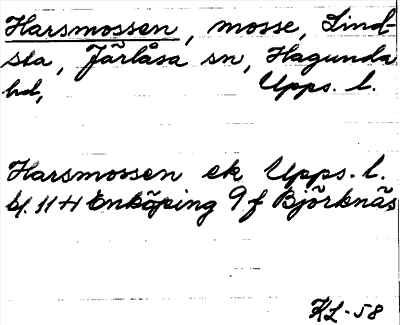 Harsmossen, mosse, Lind-
sta, Järlåsa sn, Hagunda
hd, Upps. l.
Harsmossen ek Upps. l.
bl. 11 H Enköping 9 f Björknäs
KL-58